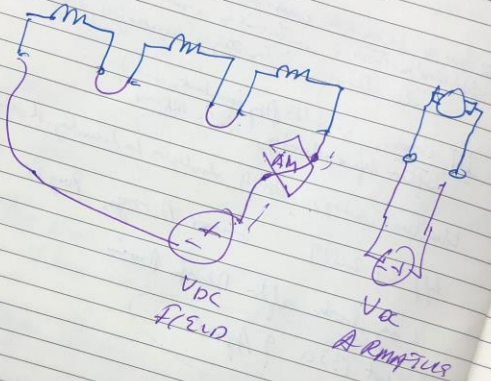 AM
- +
VDC
FIELD
- +
VDC
ARMATURE